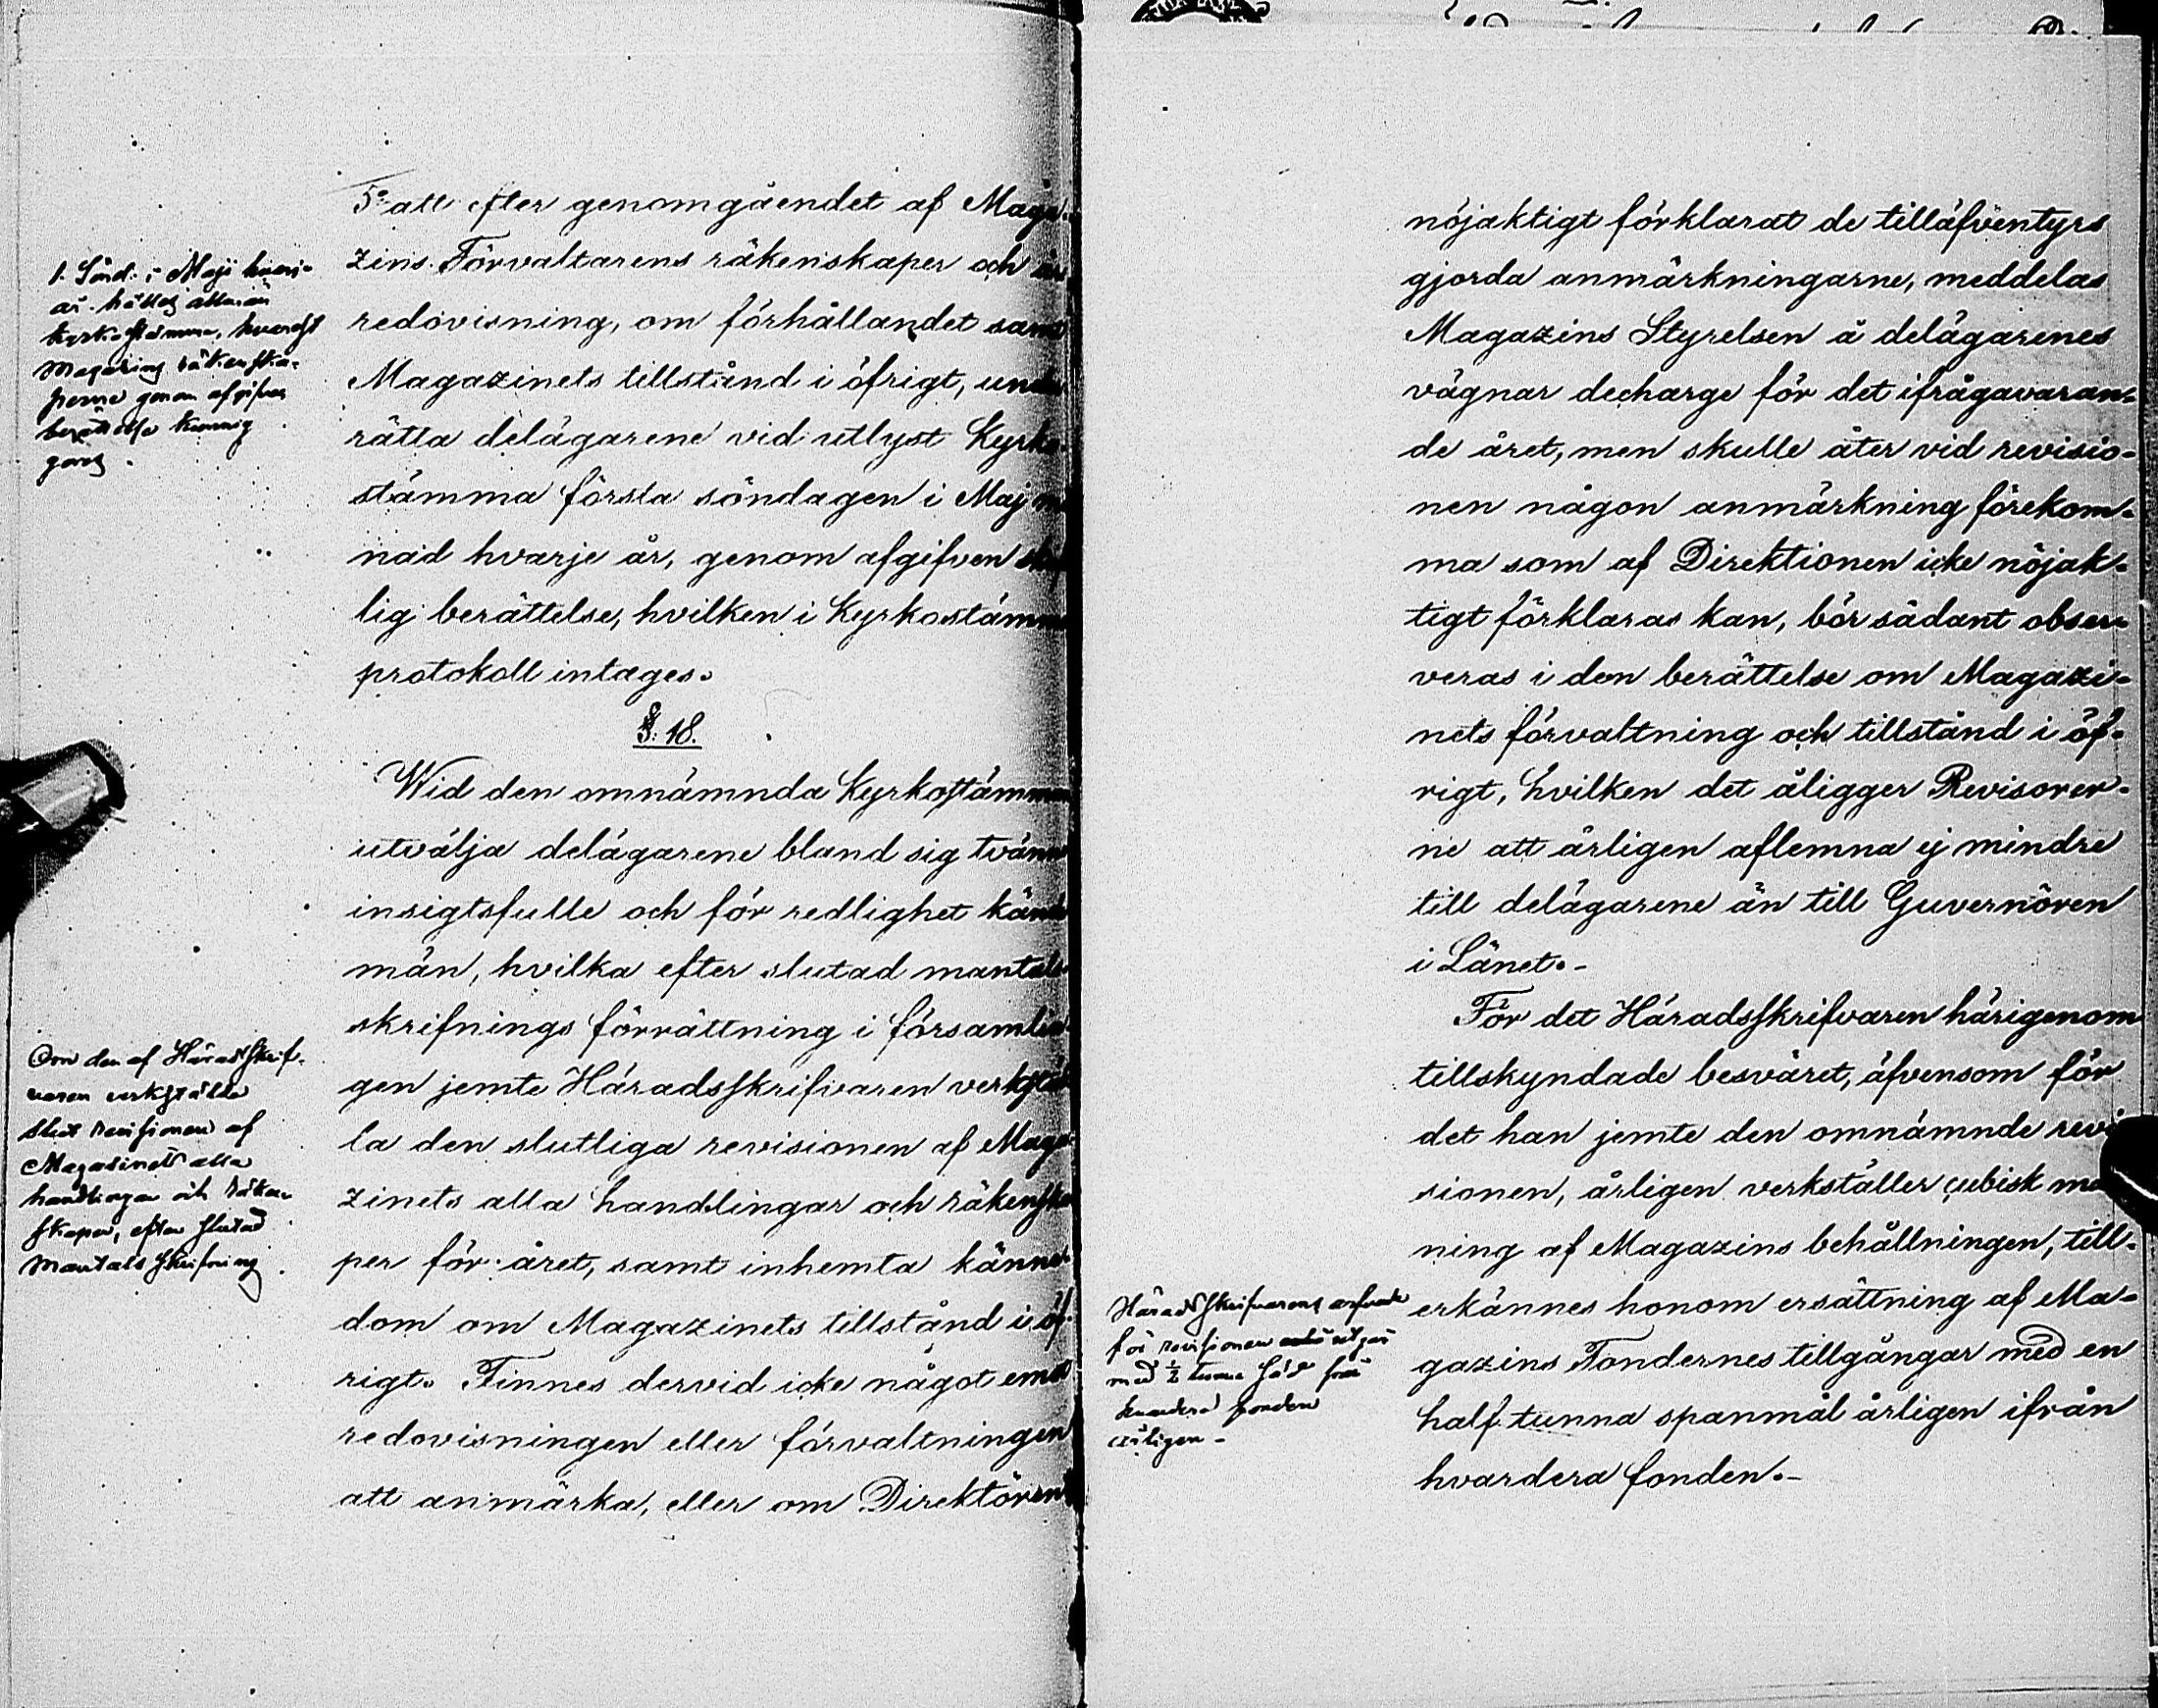 5:o att efter genomgåendet af Maga-
zins Förvaltarens räkenskaper och
redovisning, om förhållandet samt
Magazinets tillstånd i öfrigt, under
rätta delägarene vid utlyst Kyrko
stämma första söndagen i Maj
nad hvarje år, genom afgifven
lig berättelse, hvilken i Kyrkostämm
protokoll intages.
§: 18.
Wid den omnämnda Kyrkostämman
utvälja delägarene bland sig tvänne
insigtsfulle och för redlighet kände
män, hvilka efter slutad mantals
skrifnings förrättning i församlin
gen jemte Häradsskrifvaren verkstäl
la den slutliga revisionen af Maga
zinets alla handlingar och räkenska
per för året, samt inhemta känne-
dom om Magazinets tillstånd i öf-
rigt. Finnes dervid icke något emot
redovisningen eller förvaltningen
att anmärka, eller om Direktören
1. Sönd. i Maji hvarj-
år hålles allmän
kyrkostämma, hvarest
Magazins räkenska-
perne genom afgifven
berättelse kunnig
göres.
Om den af Häradsskrif-
varen verkstälda
slut Revisionen af
Magasinets alla
handlingar och räken-
skaper, efter slutad
Mantals skrifning
nöjaktigt förklarat de tilläfventyrs
gjorda anmärkningarne, meddelas
Magazins Styrelsen å delägarenes
vägnar decharge för det ifrågavaran-
de året, men skulle åter vid revisio-
nen någon anmärkning förekom-
ma som af Direktionen icke nöjak-
tigt förklaras kan, bör sådant obser-
veras i den berättelse om Magazi-
nets förvaltning och tillstånd i öf-
rigt, hvilken det åligger Revisorer-
ne att årligen aflemna ej mindre
till delägarene än till Guvernören
i Länet.-
För det Häradsskrifvaren härigenom
tillskyndade besväret, äfvensom för
det han jemte den omnämnde revi
sionen, årligen verkställer cubisk mä
ning af Magazins behållningen, till-
erkännes honom ersättning af Ma-
gazins Fondernes tillgångar med en
half tunna spanmål årligen ifrån
hvardera fonden.-
Häradsskrifvarens arfvode
för revisionen utgår
med ½ tunna Säd från
hvardera fonden
årligen -